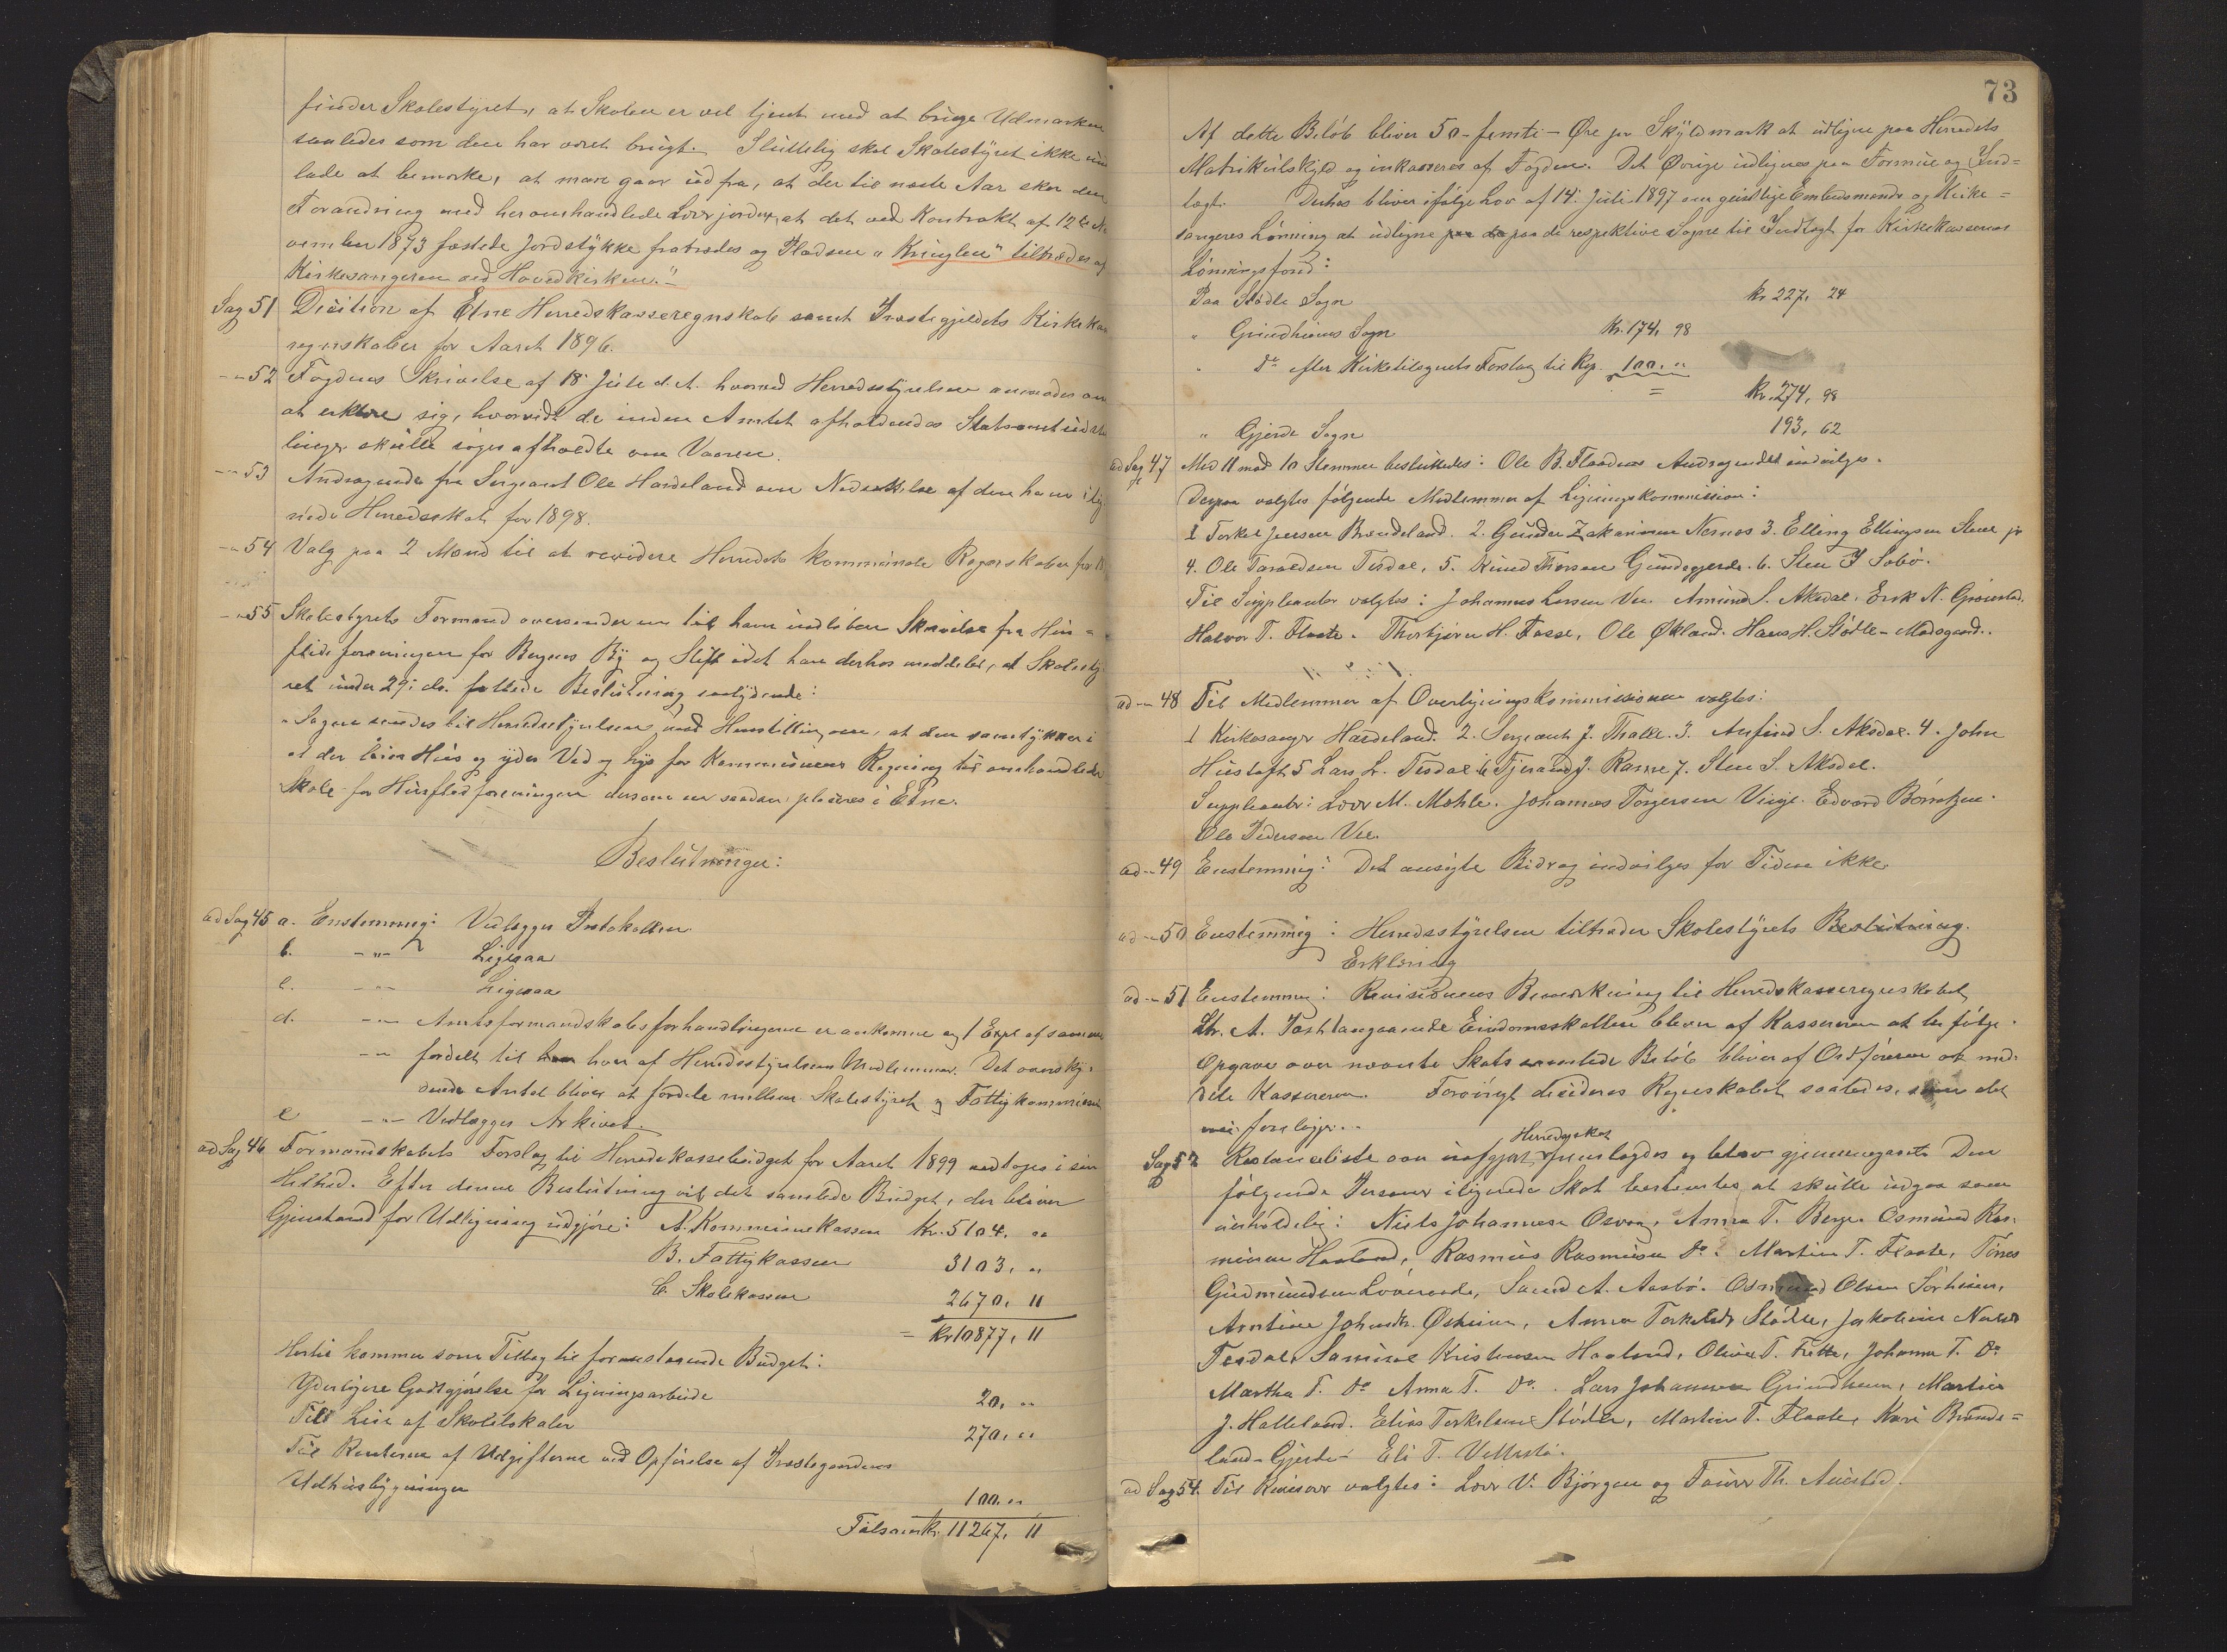 finder Skolestyret, at Skolen er vel tjent med at bruge Udmarken
saaledes som den har været brugt. Sluttelig skal Skolestyret ikke und
lade at bemærke, at man gaar ud fra, at der til næste Aar sker den
Forandring med heromhandlede Lærerjorder, at det ved Kontrakt af 12te No
vember 1873 fæstede Jordstykke fratrædes og Pladsen "Kringlen" tiltrædes af
Kirkesangeren ved Hovedkirken."
Sag 51 Decition af Etne Herredskasseregnskab samt Præstegjeldets Kirkeka
regnskaber for Aaret 1896.
-"- 52 Fogdens Skrivelse af 18 Juli d.A. hvorved Herredsstyrelsen anmodes om
at erklære sig, hvorvidt de inden Amtet afholdendes Statsamtudstil
linger skulle søges afholdte om Vaaren.
-"- 53 Andragende fra Sergeant Ole Hardeland om Nedsættelse af den ham ilig
nede Herredsskat for 1898.
-"- 54 Valg paa 2 Mænd til at revidere Herredets kommunale Regnskaber for 18
-"- 55 Skolestyrets Formand oversender en til ham indløben Skrivelse fra Hus-
flidsforeningen for Bergens By og Stift idet han derhos meddeler, at Skolesty
ret under 29: ds. fattede Beslutning saalydende:
"Sagen sendes til Herredsstyrelsen med Henstilling om, at den samtykker i
at der leies Hus og ydes Ved og Lys for Kommunens Regning til omhandlede
Skole for Husflidsforeningen dersom en saadan placeres i Etne.
Beslutninger:
ad Sag 45 a. Enstemmig: Vedlægges Protokollen.
b. -"- Ligesaa
c. -"- Ligesaa
d. -"- Amtsformandskabsforhandlingerne er ankomne og 1 Expl. af samme
-"- fordelt til hver af Herredsstyrelsens Medlemmer. Det oversky-
dende Antal bliver at fordele mellem Skolestyret og Fattigkommission
e -"- Vedlægges Arkivet.
ad Sag 46. Formandskabets Forslag til Herredskassebudget for Aaret 1899 vedtoges i sin
Helhed. Efter denne Beslutning vil det samlede Budget, der bliver
Gjenstand for Udligning udgjøre: A. Kommunekassen Kr. 5104. "
B. Fattigkassen 3103. "
C. Skolekassen 2670. 11
= Kr 10877, 11
Hertil kommer som Tillæg til foranstaaende Budget:
Yderligere Godtgjørelse for Ligningsarbeide 20. "
Til Leie af Skolelokaler 270. "
Til Renterne af Udgifterne ved Opførelse af Præstegaardens
Udhusbygninger 100. "
Tilsam Kr. 11267, 11
73
Af dette Beløb bliver 50 - femti - Øre pr Skyldmark at udligne paa Herredets
Matrikulskyld og inkasseres af Fogden. Det Øvrige udlignes paa Formue og Ind-
tægt. Derhos bliver ifølge Lov af 14: Juli 1897 om geistlige Embedsmænds og Kirke-
sangeres Lønning at udligne paa de respektive Sogne til Indtægt for Kirkekassernes
Lønningsfond:
Paa Stødle Sogn Kr 227, 24
" Grindheims Sogn Kr. 174, 98
" do efter Kirketilsynets Forslag til Rep. 100. "
= Kr. 274, 98
" Gjerde Sogn 193, 62
ad Sag 47 Med 11 mod 10 Stemmer besluttedes: Ole B. Flaadens Andragende indvilges.
Derpaa valgtes følgende Medlemmer af Ligningskommission:
1 Torkel Jensen Brendeland. 2. Gunder Zakariasen Nernes 3. Elling Ellingsen Stene jr
4. Ole Taraldsen Tesdal, 5. Knud Thorsen Gundegjerde. 6. Sten I Sæbø.
Til Suppleanter valgtes: Johannes Larsen Vee. Amund S. Aksdal. Erik N. Grønstad.
Halvor T. Flaate. Thorbjørn H. Fosse, Ole Økland. Hans H. Stødle-Madsgard..
ad -"- 48 Til Medlemmer af Overligningskommissionen valgtes:
1 Kirkesanger Hardeland. 2. Sergeant J. Thalle. 3. Anfind S. Aksdal. 4. John
Hustoft 5 Lars L. Tesdal 6 Tjerand J. Ramse 7. Sten S. Aksdal.
Suppleanter: Lars M. Mæhle. Johannes Torgersen Vinge. Edvard Børretzen.
Ole Pedersen Vee.
ad -"- 49 Enstemmig: Det ansøgte Bidrag indvilges for Tiden ikke.
ad -"- 50 Enstemmig: Herredsstyrelsen tiltræder Skolestyrets Beslutning.
Erklæring
ad -"- 51 Enstemmig: Revisionens Bemærkning til Herredskasseregnskabet
Ltr. A. Post 1 angaaende Eiendomsskatten bliver af Kassereren at følge.
Opgave over nævnte Skats samlede Beløb bliver af Ordføreren at med-
dele Kassereren. Forøvrigt decideres Regnskabet saaledes, som det
foreligger..
Sag 52 Restanceliste over uafgjort Herredsskat fremlagdes og blev gjennemgaaet. Den
følgende Personer ilignede Skat bestemtes at skulle udgaa som
uerholdelig: Niels Johannesen Osvaag, Anna T. Berge. Osmund Ras-
mussen Haaland, Rasmus Rasmussen do. Martin T. Flaate, Tønnes
Gudmundsen Løvereide, Svend A. Aasbø. Osmund Olsen Sørheim,
Arntine Johnsdr. Østreim, Anna Torkelsdr Stødle, Jakobine Nielsdr
Tesdal, Samuel Kristensen Haaland, Oline T. Frette, Johanna T. do
Martha T. do Anna T. do. Lars Johannesen Grindheim, Martin
J. Halleland. Elias Torkelsen Stødle, Martin T. Flaate, Kari Brende=
land-Gjerde- Eli T. Vellestø.
ad Sag 54. Til Revisorer valgtes: Lars V. Bjørgen og Th. Austad.